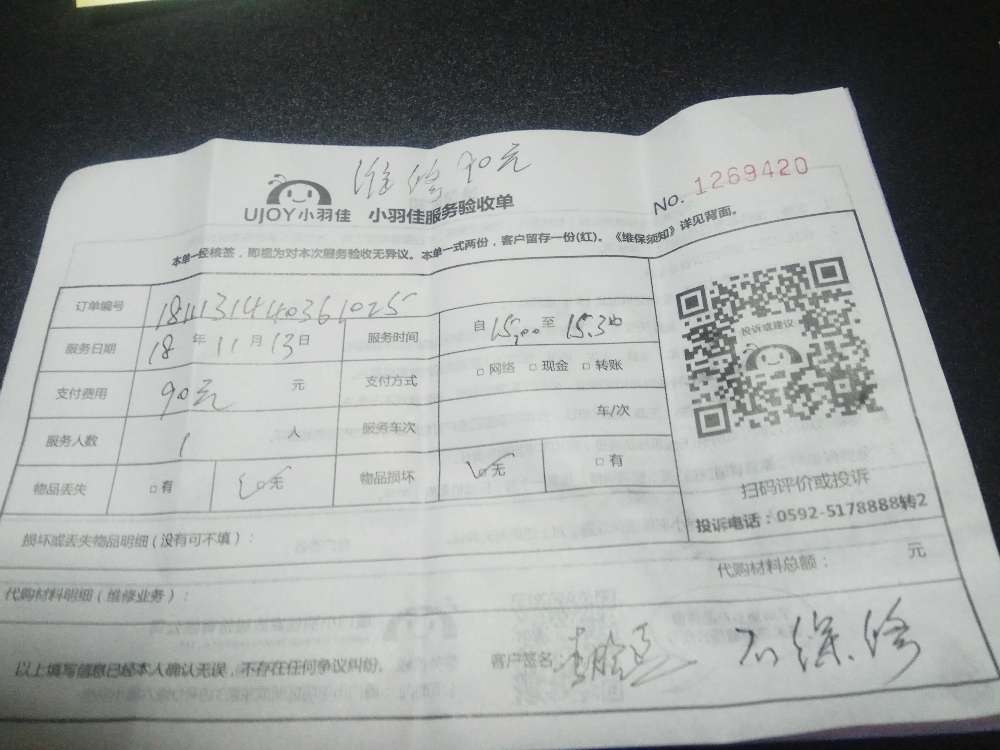 维修90元
UJOY小羽佳 小羽佳服务验收单
No. 1269420
本单一经核签，即视为对本次服务验收无异议。本单一式两份，客户留存一份(红)。《维保须知》详见背面。
订单编号 1811314403610255
服务日期 18 年 11 月 13 日 服务时间 自 15:00 至 15:30
支付费用 90元 元 支付方式 □ 网络 □ 现金 □ 转账
服务人数 1 人 服务车次 车/次
物品丢失 □ 有 □ 无 物品损坏 □ 无 □ 有
投诉或建议
扫码评价或投诉
投诉电话：0592-5178888转2
损坏或丢失物品明细（没有可不填）：
代购材料明细（维修业务）： 代购材料总额： 元
以上填写信息已经本人确认无误，不存在任何争议纠纷。 客户签名：
不保修